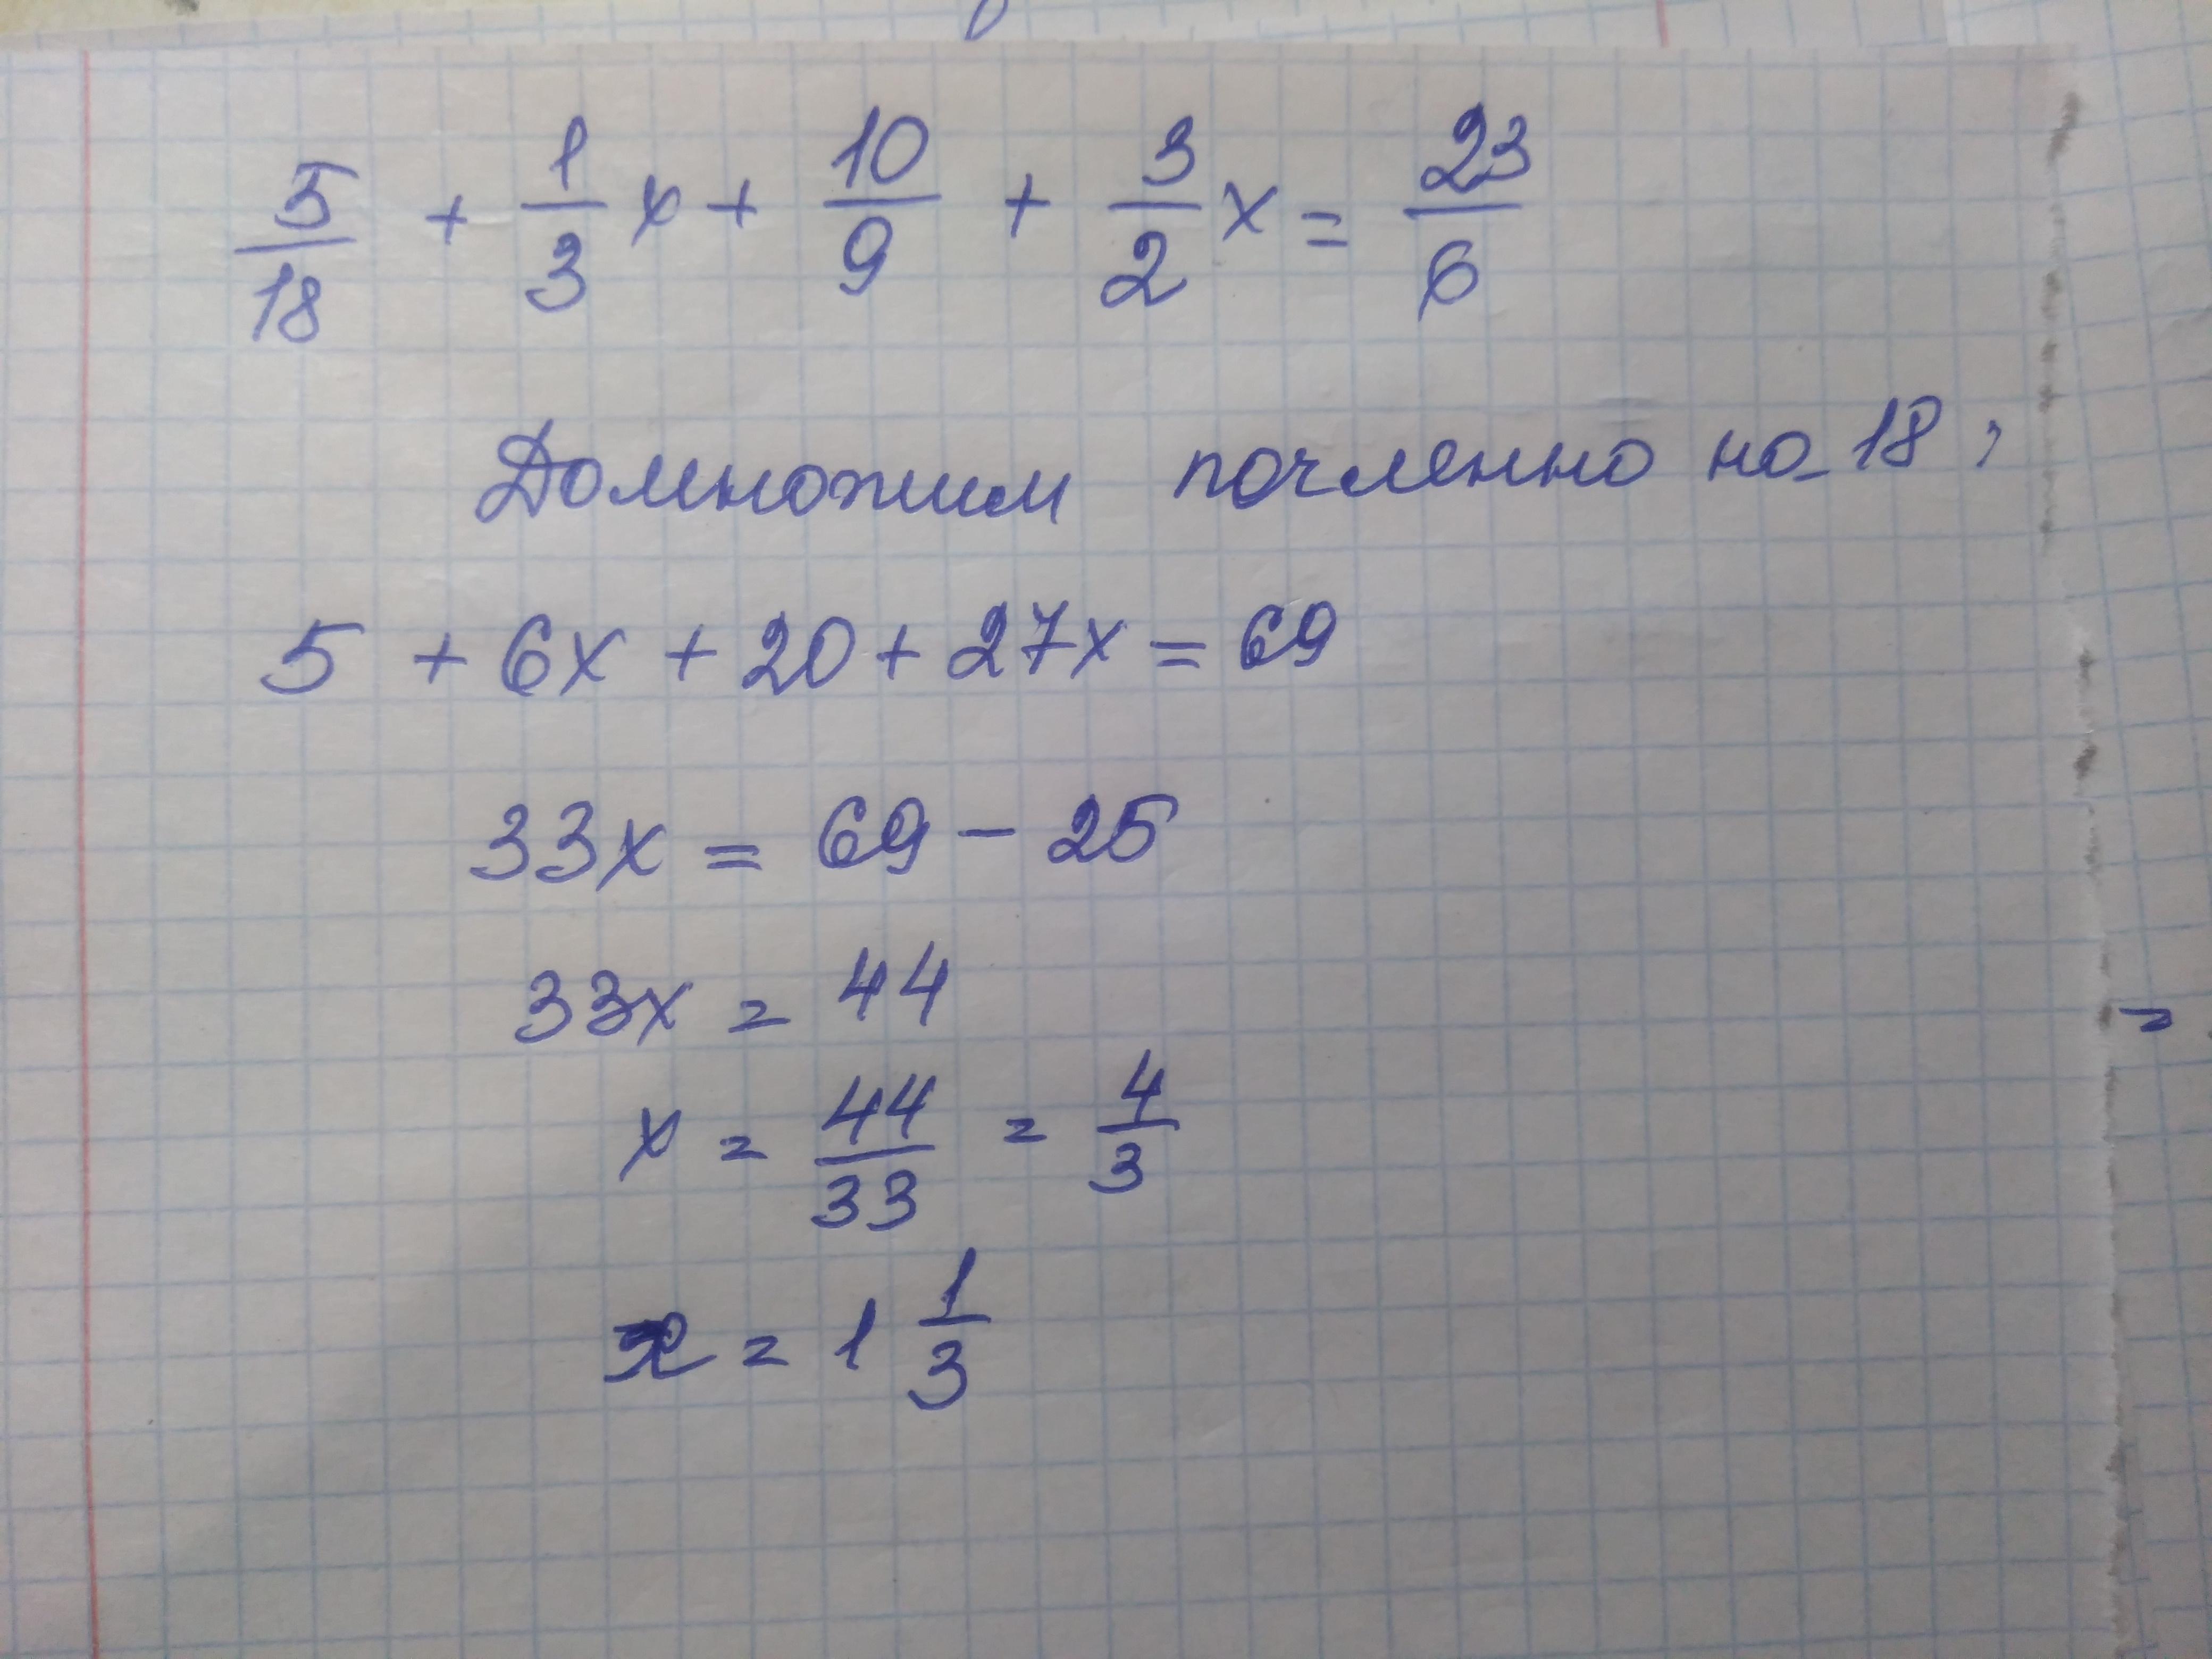 5/18 + 1/3 x + 10/9 + 3/2 x = 23/6
Домножим почленно на 18:
5 + 6x + 20 + 27x = 69
33x = 69 - 25
33x = 44
x = 44/33 = 4/3
x = 1 1/3